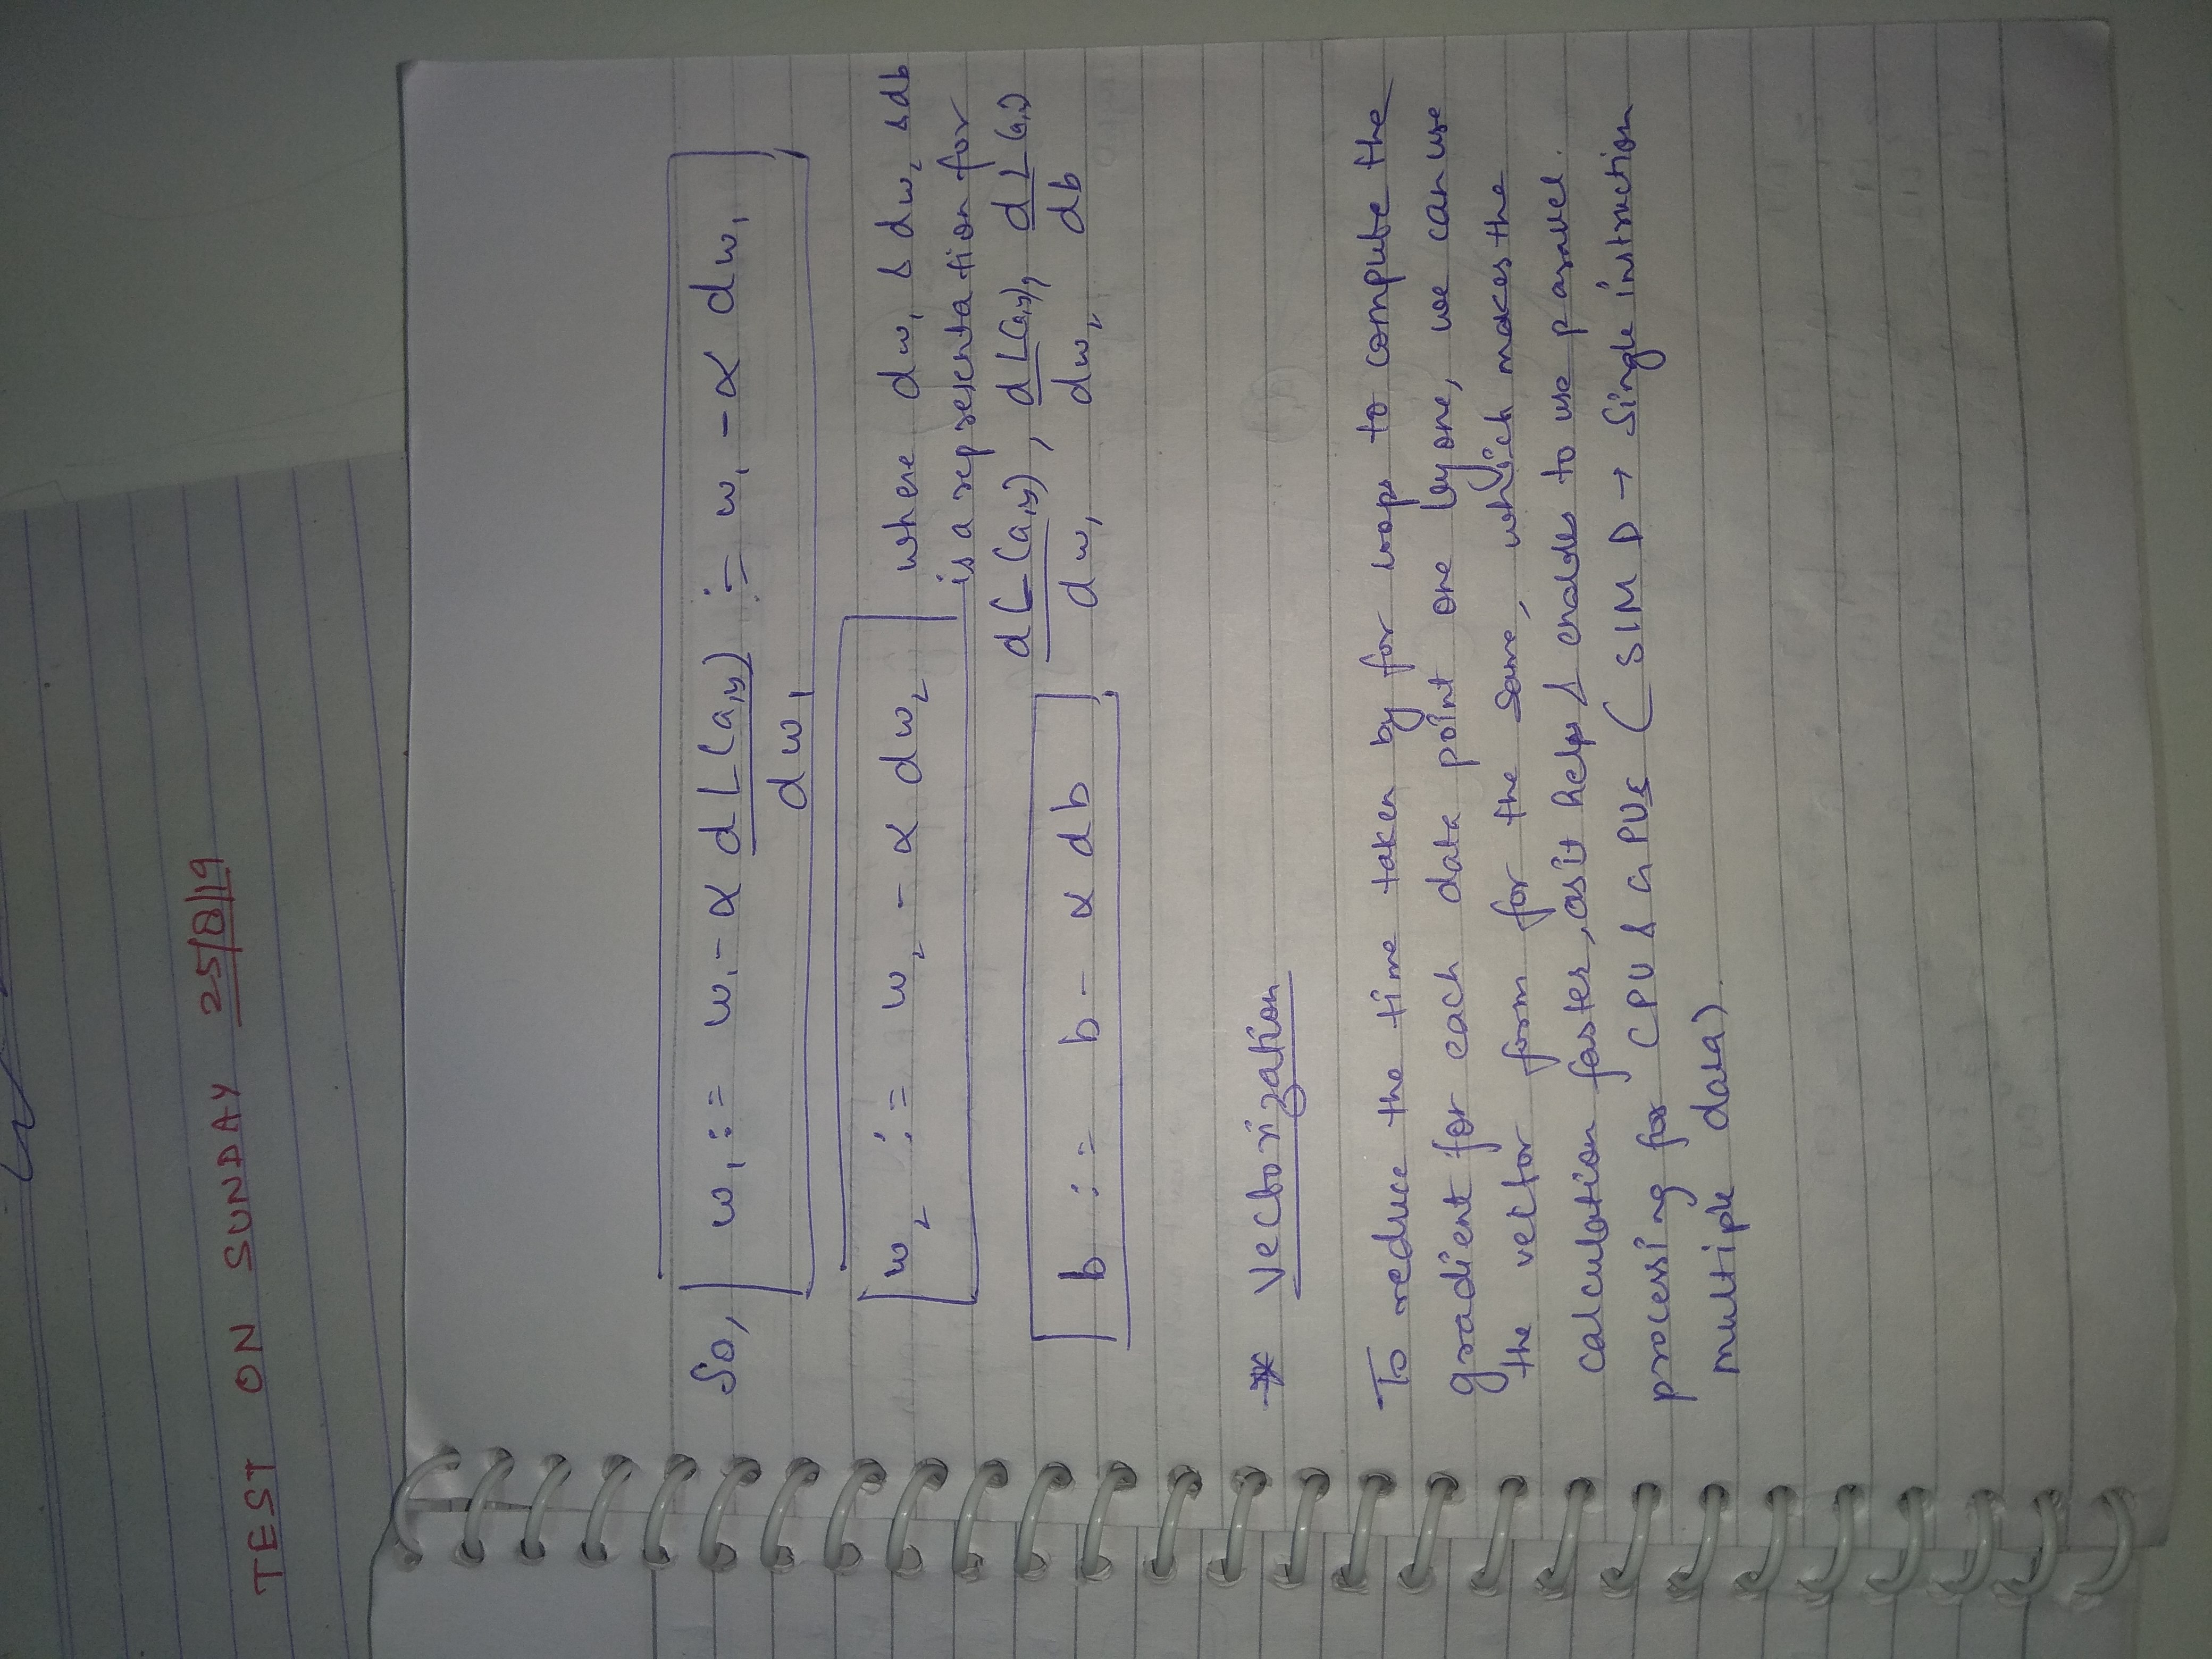 TEST ON SUNDAY 25/8/19
So, w₁ := w₁ - α dL(a,y)/dw₁ := w₁ - α dw₁
w₂ := w₂ - α dw₂ where dw₁ & dw₂ & db
is a representation for
b := b - α db dL(a,y)/dw₁, dL(a,y)/dw₂, dL(a,y)/db
* Vectorization
To reduce the time taken by for loops to compute the
gradient for each data point one by one, we can use
the vector form for the same, which makes the
calculation faster, as it helps & enables to use parallel
processing for CPU & GPUs (SIMD → Single instruction
multiple data).